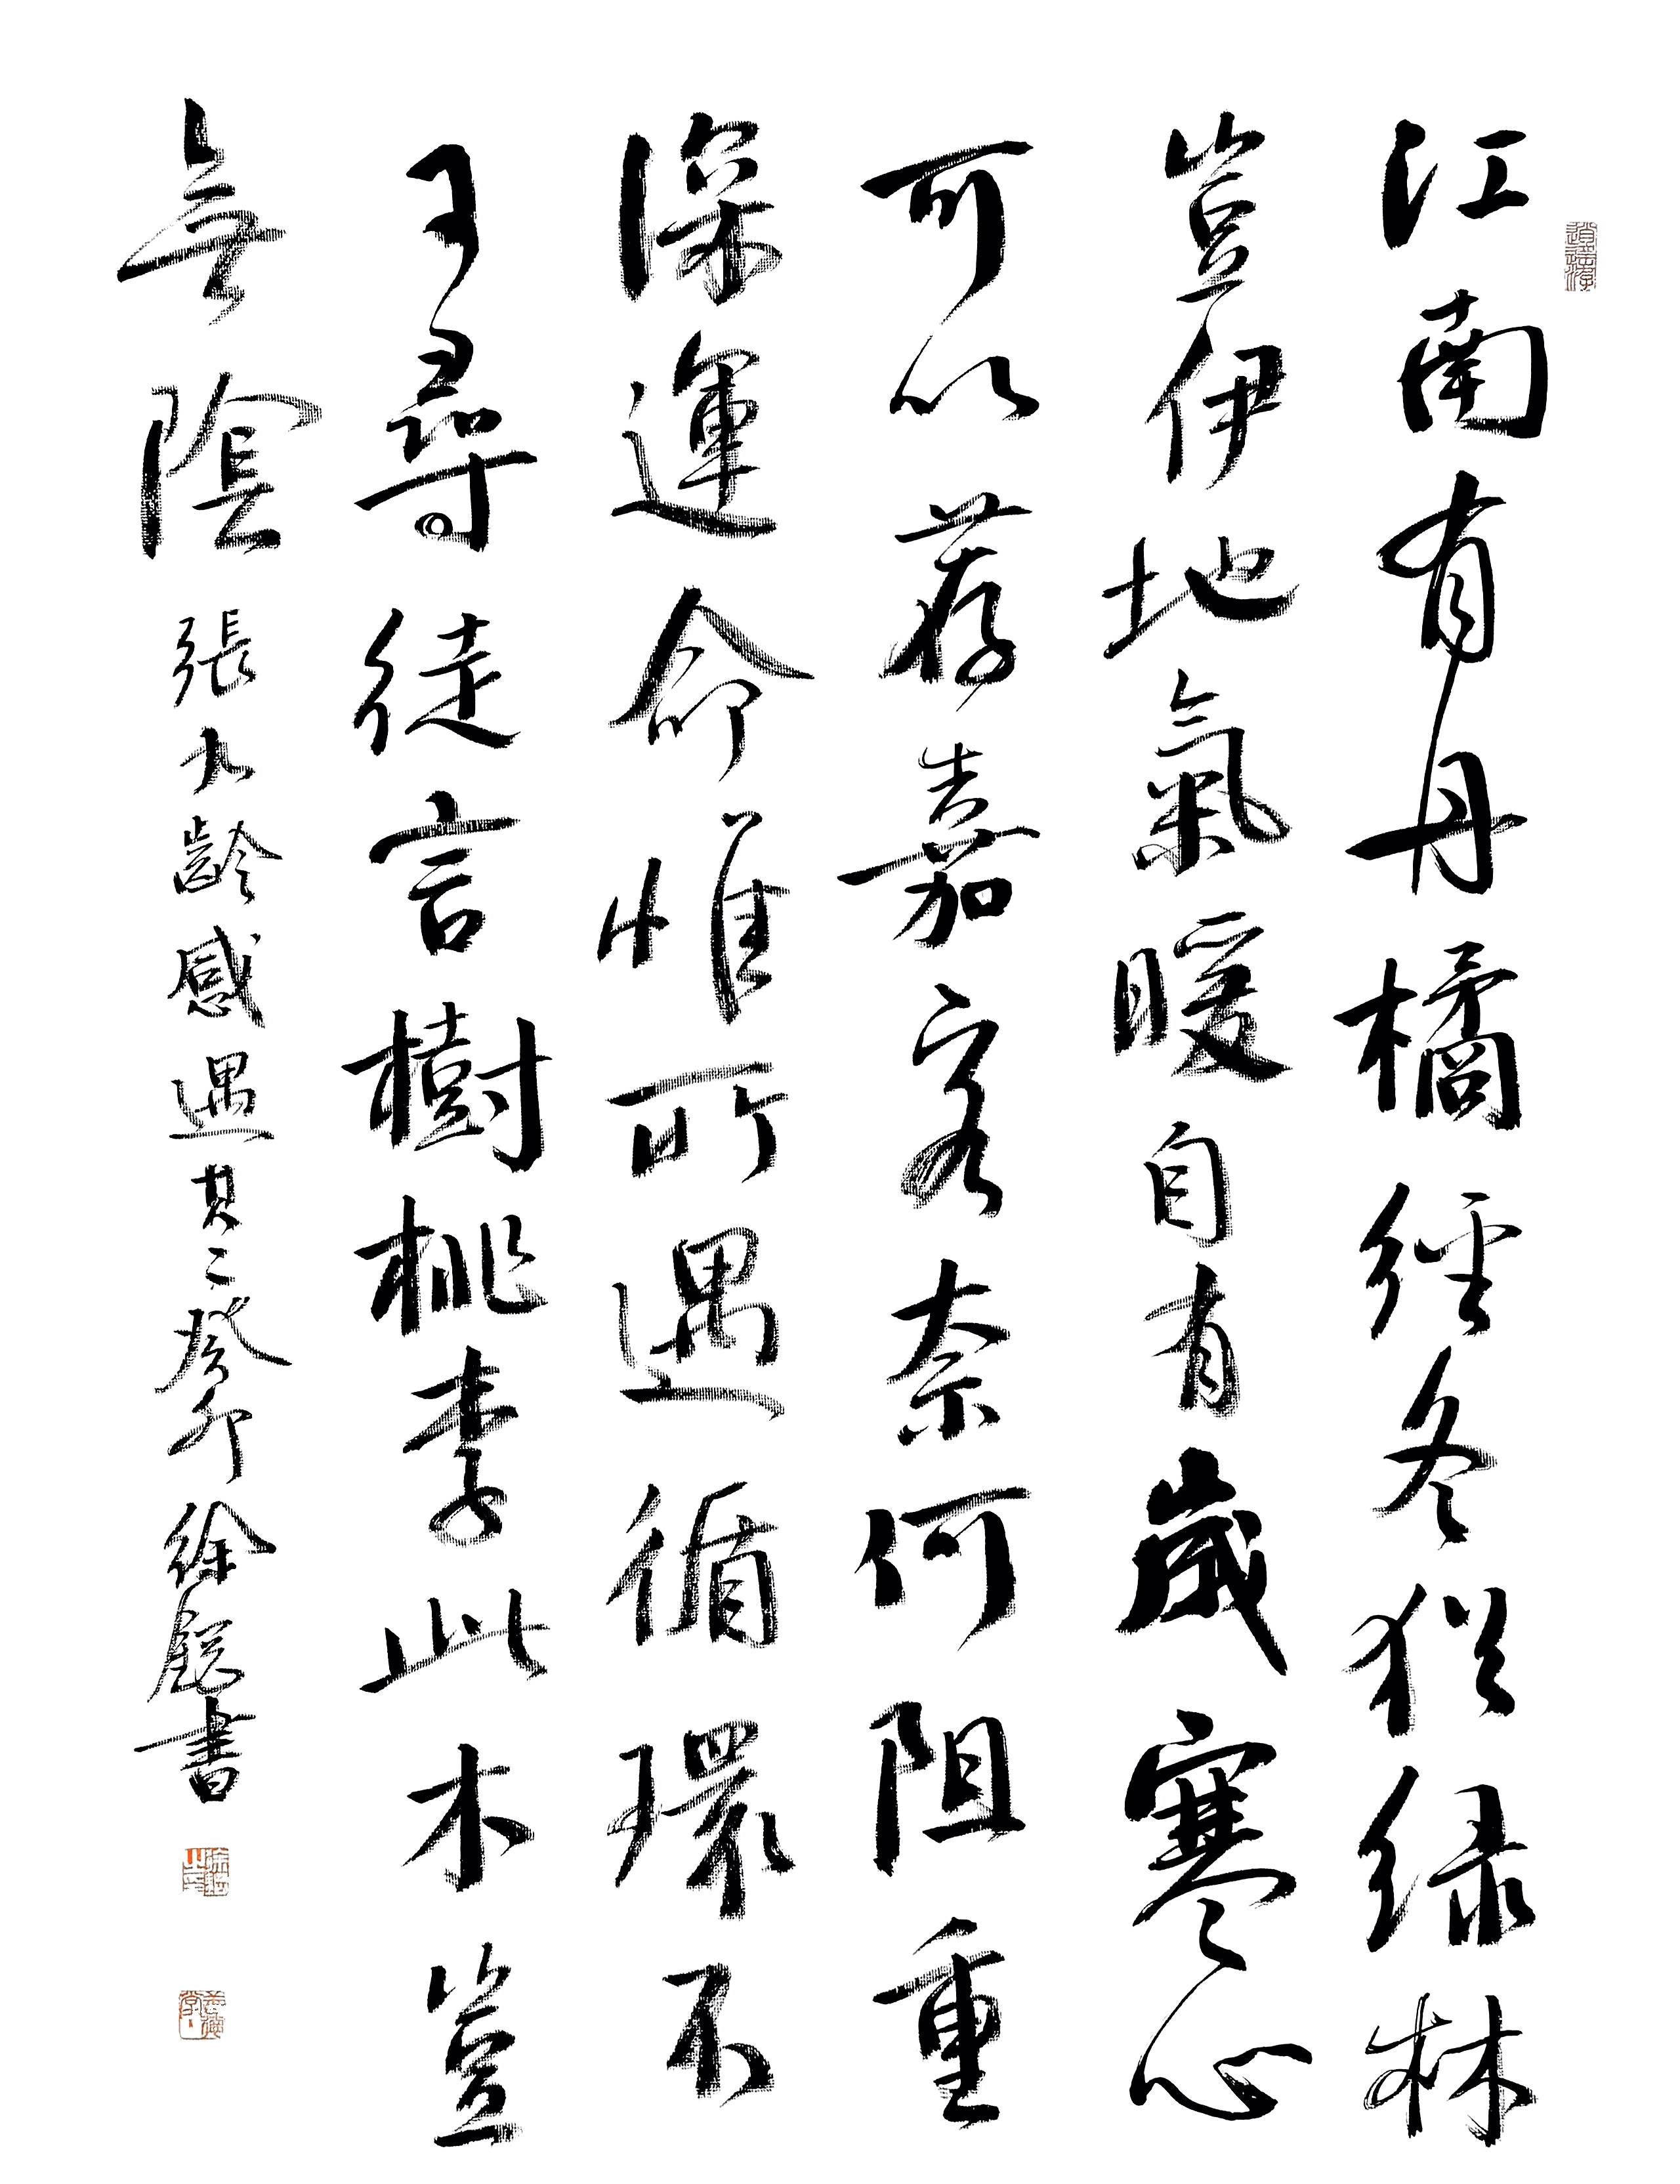 江南有丹橘經冬猶緑林
豈伊地氣暖自有歲寒心
可以薦嘉客奈何阻重
深運命惟所遇循環不
可尋徒言樹桃李此木豈
無陰
張九齡感遇其二癸卯徐書